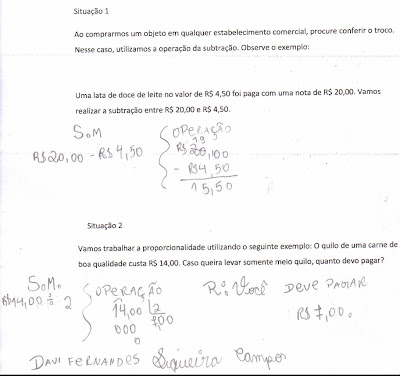 Situação 1
Ao comprarmos um objeto em qualquer estabelecimento comercial, procure conferir o troco.
Nesse caso, utilizamos a operação da subtração. Observe o exemplo:
Uma lata de doce de leite no valor de R$ 4,50 foi paga com uma nota de R$ 20,00. Vamos
realizar a subtração entre R$ 20,00 e R$ 4,50.
SoM
R$20,00 - R$4,50
OPERAÇÃO
19
R$ 20,100
- R$4,50
15,50
Situação 2
Vamos trabalhar a proporcionalidade utilizando o seguinte exemplo: O quilo de uma carne de
boa qualidade custa R$ 14,00. Caso queira levar somente meio quilo, quanto devo pagar?
R$14,00 2
OPERAÇÃO
14,00 2
000 7,00
0
R: Você DEVE PAGAR
R$ 7,00.
DAVI FERNANDES Siqueira Campos